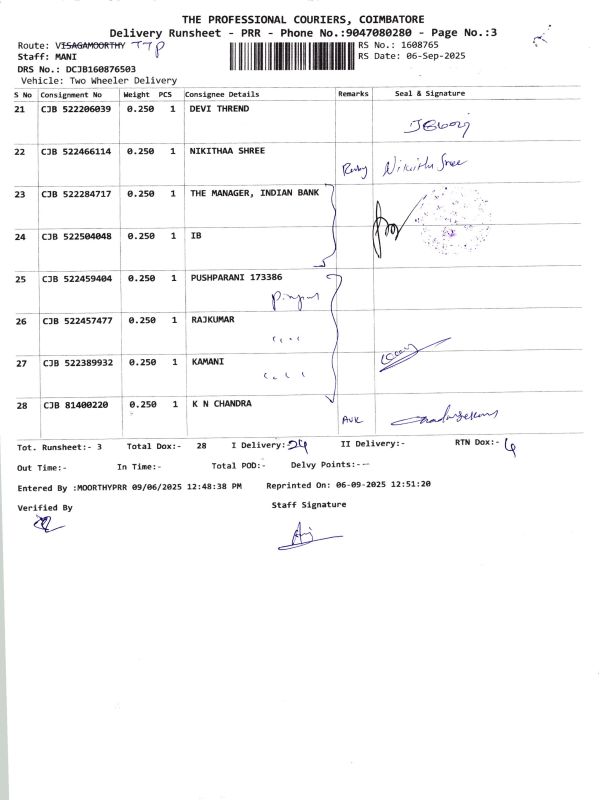 THE PROFESSIONAL COURIERS, COIMBATORE
Delivery Runsheet - PRR - Phone No.:9047080280 - Page No.:3
Route: VISAGAMOORTHY TTP
RS No.: 1608765
Staff: MANI
RS Date: 06-Sep-2025
DRS No.: DCJB160876503
Vehicle: Two Wheeler Delivery
S No Consignment No Weight PCS Consignee Details Remarks Seal & Signature
21 CJB 522206039 0.250 1 DEVI THREND
22 CJB 522466114 0.250 1 NIKITHAA SHREE Nikitha Sree
23 CJB 522284717 0.250 1 THE MANAGER, INDIAN BANK
24 CJB 522504048 0.250 1 IB
25 CJB 522459404 0.250 1 PUSHPARANI 173386
26 CJB 522457477 0.250 1 RAJKUMAR
27 CJB 522389932 0.250 1 KAMANI
28 CJB 81400220 0.250 1 K N CHANDRA
Tot. Runsheet:- 3 Total Dox:- 28 I Delivery:- 24 II Delivery:- RTN Dox:- 4
Out Time:- In Time:- Total POD:- Delvy Points:---
Entered By :MOORTHYPRR 09/06/2025 12:48:38 PM Reprinted On: 06-09-2025 12:51:20
Verified By Staff Signature